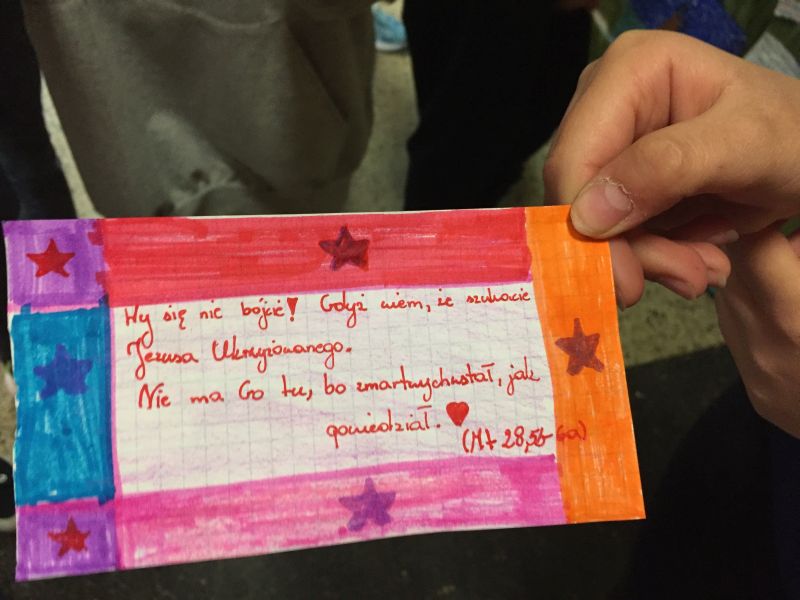 Wy się nie bójcie! Gdyż wiem, że szukacie
Jezusa Ukrzyżowanego.
Nie ma Go tu, bo zmartwychwstał, jak
powiedział.
(Mt 28,5b-6a)